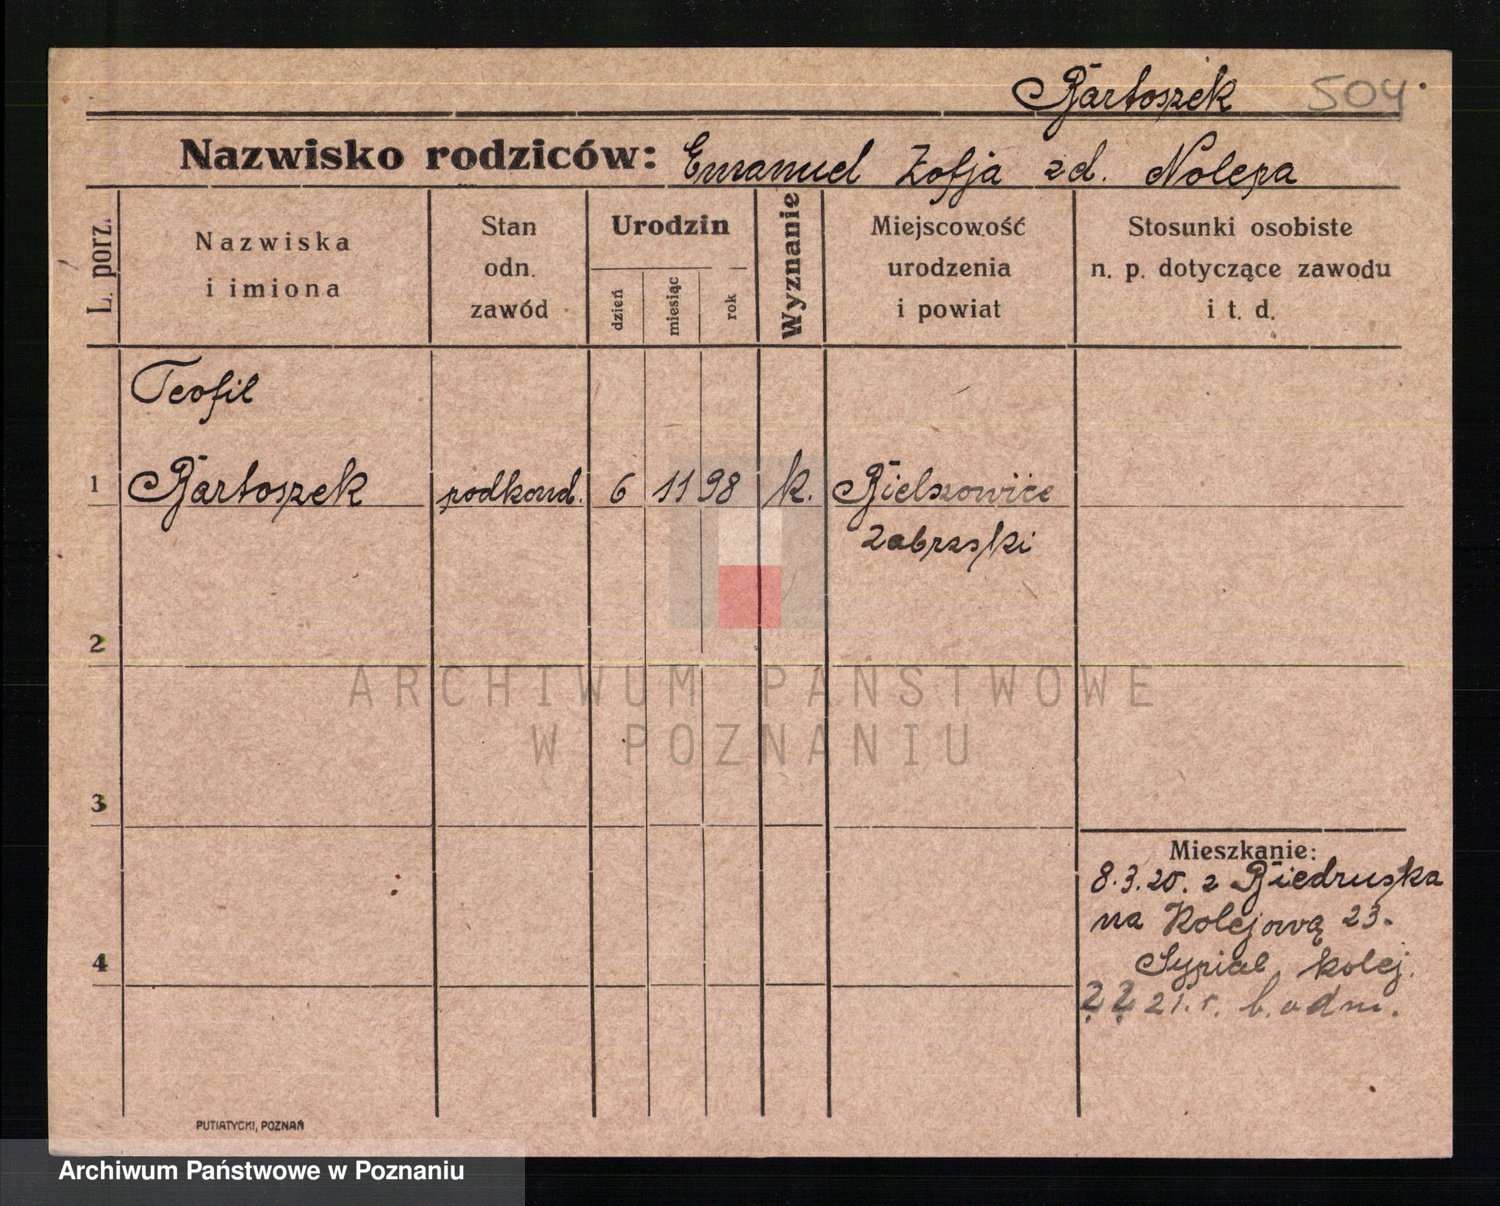 Bartoszek 504
Nazwisko rodziców: Emanuel Zofja zd. Nolepa
L. porz.
Nazwiska
i imiona
Stan
odn.
zawód
Urodzin
dzień
miesiąc
rok
Wyznanie
Miejscowość
urodzenia
i powiat
Stosunki osobiste
n. p. dotyczące zawodu
i t. d.
Teofil
1 Bartoszek podkond. 6 11 98 k. Bielszowice
Zabrzski
2
ARCHIWUM PAŃSTWOWE
W POZNANIU
3
Mieszkanie:
8.3.20. z Biedruska
na Kolejową 23.
4 Sypial kolej.
? ? 21. r. b. adm.
PUTIATYCKI, POZNAŃ
Archiwum Państwowe w Poznaniu